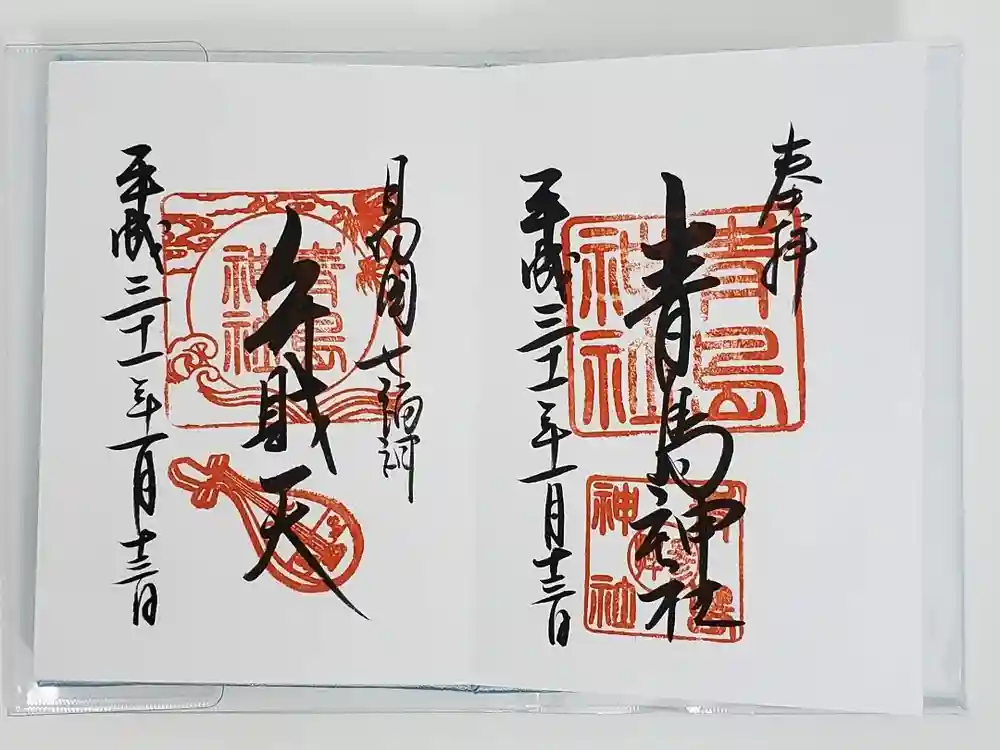 奉拝
青島神社
青島神社
青島神社
平成三十一年一月十三日
日向国 七福神
弁財天
青島神社
平成三十一年一月十三日